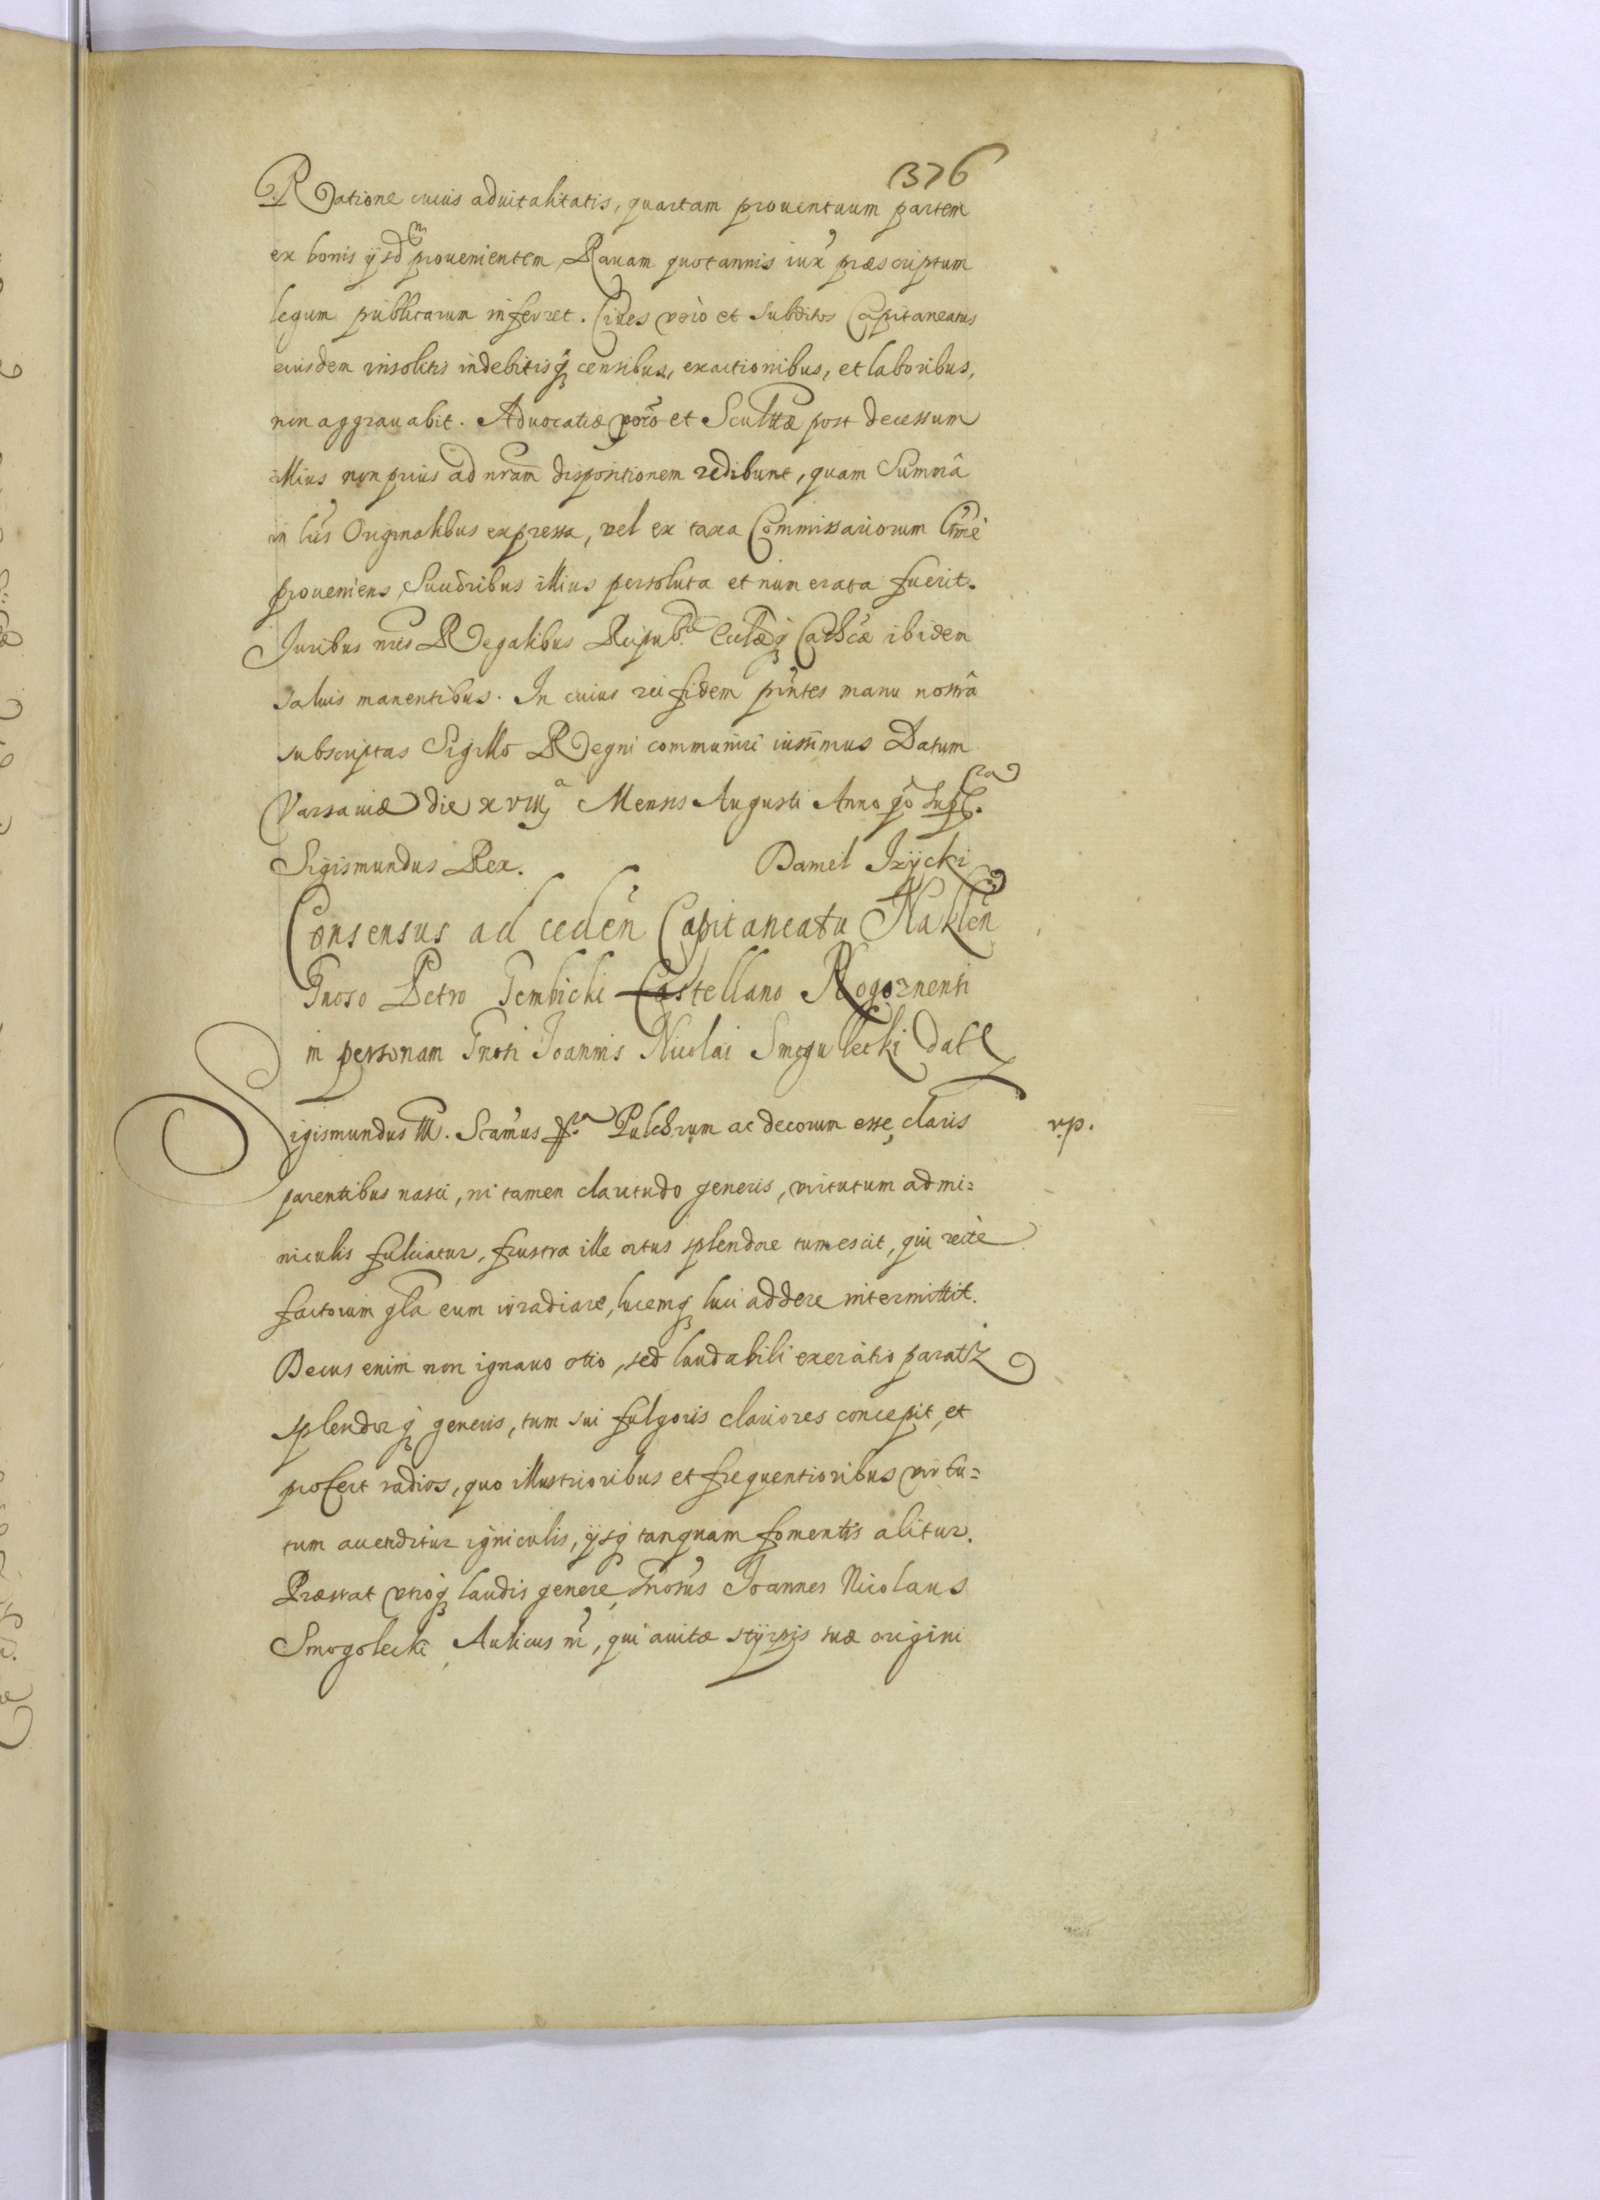 376
Ratione cuius aduitalitatis, quartam prouentuum partem
ex bonis ijsdem prouenientem, Rauam quotannis iux̃ præscriptum
legum publicarum inferret. Ciues verò et subditos Capitaneatus
eiusdem insolitis indebitisq; censibus, exactionibus, et laboribus,
non aggrauabit. Aduocatiæ verò et Scultiæ post decessum
illius non prius ad nr̃am dispositionem redibunt, quam Summa
in lr̃is Originalibus expressa, vel ex taxa Commissariorum
proueniens, Succoribus illius persoluta et numerata fuerit.
Juribus nr̃is Regalibus Reipub: Ecclæq; Cathcæ ibidem
saluis manentibus. In cuius rei fidem pñtes manu nostrâ
subscriptas Sigillo Regni communiri iussimus Datum
Varsauiæ die xviij Mensis Augusti Anno qo supra
Sigismundus Rex. Daniel Jżycki
Consensus ad ceden̄ Capitaneatu Naklen̄
Gnoso Petro Gembicki Castellano Rogoznensi
in personam Gnosi Joannis Nicolai Smogulecki dat9
Sigismundus III. Scamus &ca Pulchrum ac decorum esse, claris v.p.
parentibus nasci, ni tamen claritudo generis, virtutum admi=
niculis fulciatur, frustra ille ortus splendore tumescit, qui rectè
factorum gla eum irradiare, lucemq; luci addere intermittit.
Decus enim non ignauo otio, sed laudabili exercitio paratr
splendorq; generis, tum sui fulgoris clariores concepit, et
profert radios, quo illustrioribus et frequentioribus virtu=
tum accenditur igniculis, ijsq; tanquam fomentis alitur.
Præstat vtroq; laudis genere, Gnosus Joannes Nicolaus
Smogolecki, Aulicus nr̃, qui auitæ styrpis suæ origini